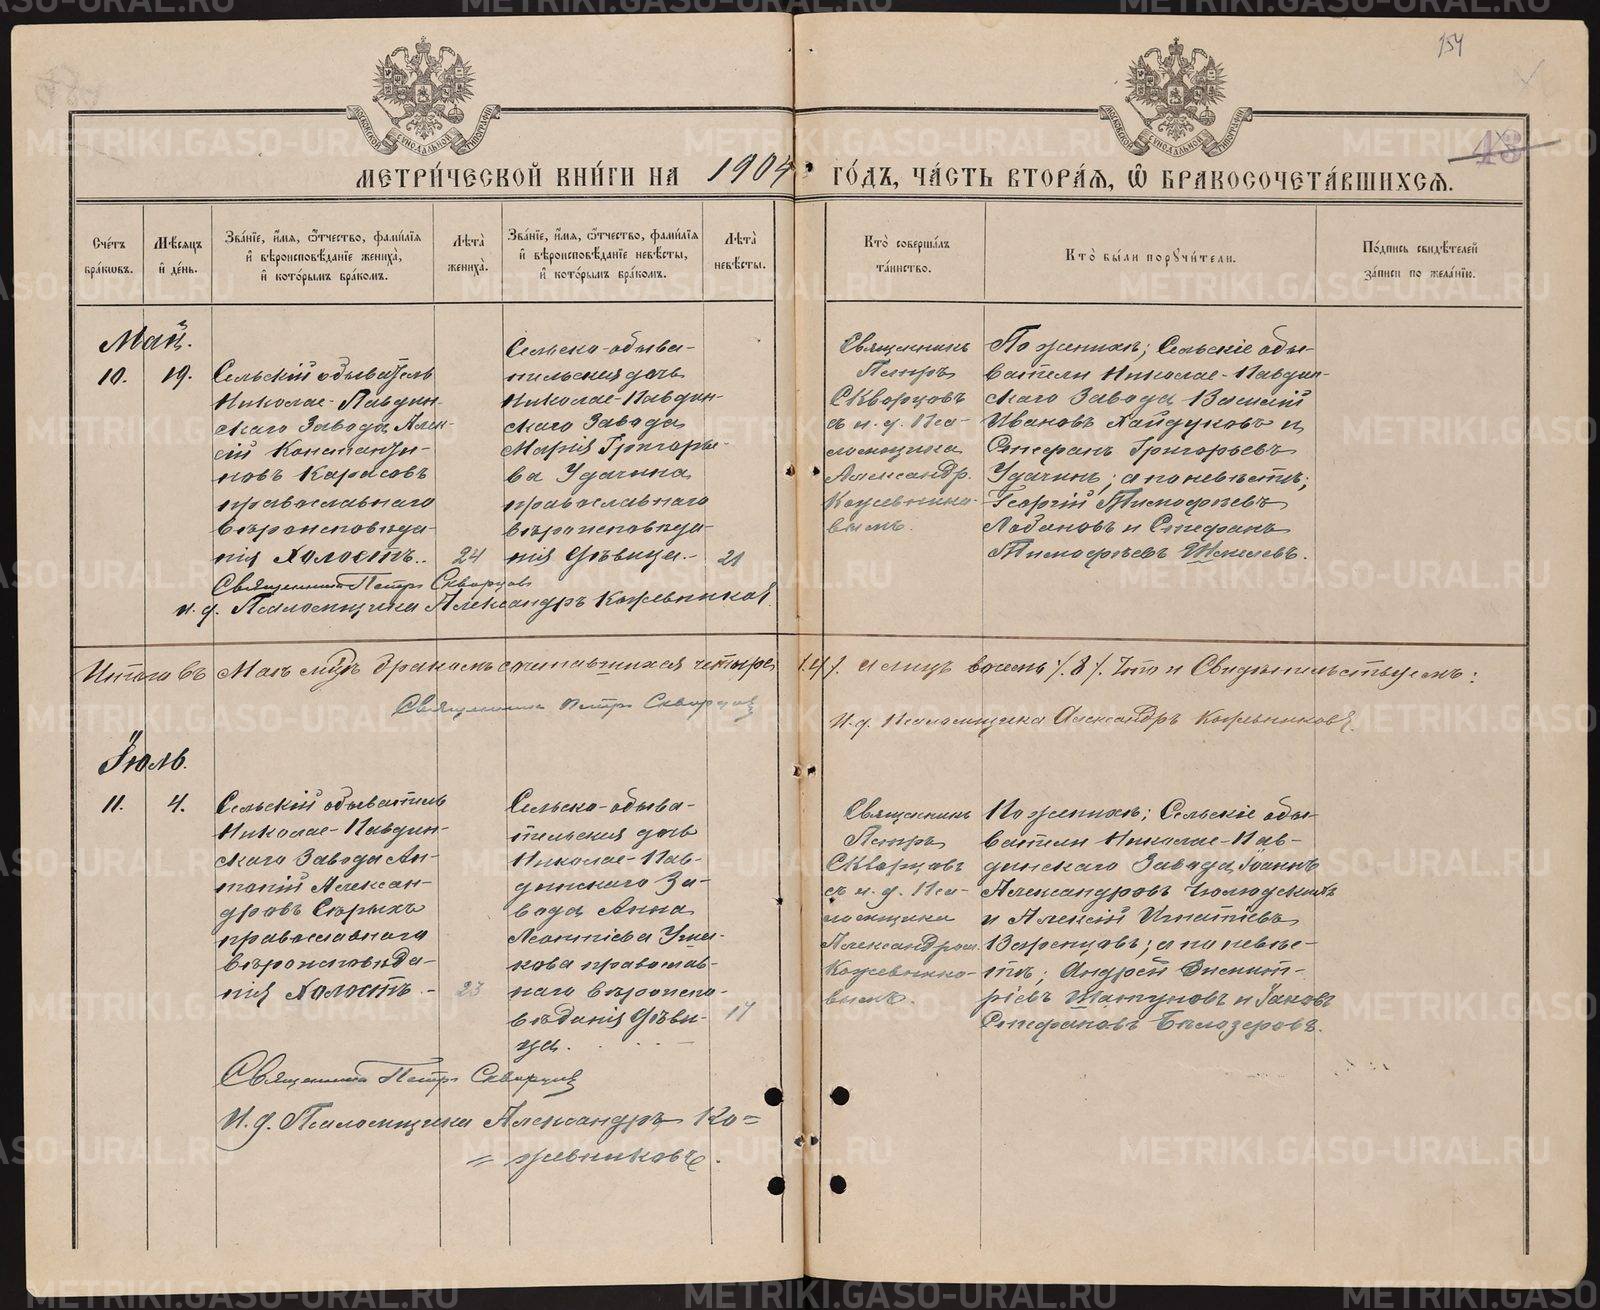 154
43
МЕТРИ́ЧЕСКОЙ КНИ́ГИ НА 1904 ГО́ДЪ, ЧА́СТЬ ВТОРА́Я, Ѡ҆ БРАКОСОЧЕТА́ВШИХСЯ.
Сче́тъ бра́ковъ.
Мѣ́сяцъ и҆ де́нь.
Зва́нїе, и҆́мя, ѻ҆́тчество, фами́лїя и҆ вѣроисповѣ́данїе жениха̀, и҆ кото́рымъ бра́комъ.
Лѣ́та жениха̀.
Зва́нїе, и҆́мя, ѻ҆́тчество, фами́лїя и҆ вѣроисповѣ́данїе невѣ́сты, и҆ кото́рымъ бра́комъ.
Лѣ́та невѣ́сты.
Кто̀ соверша́лъ та́инство.
Кто̀ бы́ли порꙋчи́тели.
По́дпись свидѣ́телей за́писи по жела́нїю.
Май.
10.
19.
Сельскій обыватель
Николае-Павдин-
скаго Завода Алек-
сій Константи-
новъ Карасовъ
православнаго
вѣроисповѣда-
нія Холостъ.
24
Сельско-обыва-
тельская дочь
Николае-Павдин-
скаго Завода
Марія Григорье-
ва Удачина
православнаго
вѣроисповѣда-
нія дѣвица.
21
Священникъ
Петръ
Скворцовъ
съ и. д. Пса-
ломщика
Александр.
Кожевнико-
вымъ.
По женихѣ; Сельскіе обы-
ватели Николае-Павдин-
скаго Завода Василій
Ивановъ Хайдуковъ и
Стефанъ Григорьевъ
Удачинъ; а по невѣстѣ;
Георгій Тимофѣевъ
Лобановъ и Стефанъ
Тимофѣевъ Шмелевъ.
Священникъ Петръ Скворцовъ
и. д. Псаломщика Александръ Кожевниковъ
Итого въ Маѣ мцѣ бракомъ сочетавшихся четыре /.4/. а лицъ восемь /.8/. Что и Свидѣтельствуемъ:
Священникъ Петръ Скворцовъ
И. д. Псаломщика Александръ Кожевниковъ.
Іюль.
11.
4.
Сельскій обыватель
Николае-Павдин-
скаго Завода Ан-
тоній Алексан-
дровъ Сѣрыхъ
православнаго
вѣроисповѣда-
нія Холостъ.-
23
Сельско-обыва-
тельская дочь
Николае-Пав-
динскаго За-
вода Анна
Леонтіева Уша-
кова православ-
наго вѣроиспо-
вѣданія дѣви-
ца.
17
Священникъ
Петръ
Скворцовъ
съ и. д. Пса-
ломщика
Александром.
Кожевнико-
вымъ.
По женихѣ; Сельскіе обы-
ватели Николае-Пав-
динскаго Завода Іоаннъ
Александровъ
и Алексій Игнатіевъ
Варенцовъ; а по невѣс-
тѣ; Андрей Димит-
ріевъ Шатуновъ и Іаковъ
Стефановъ Бѣлозеровъ.
Священникъ Петръ Скворцовъ
И. д. Псаломщика Александръ Ко=
= жевниковъ.